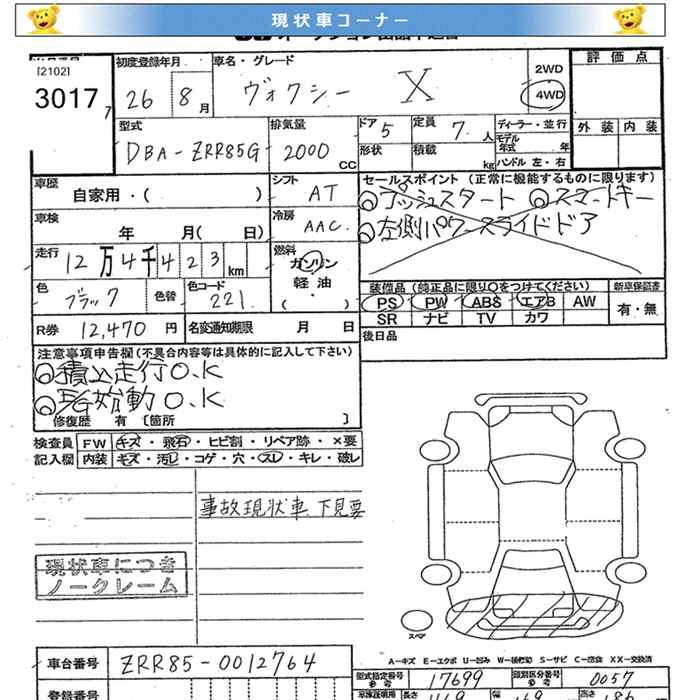 現状車コーナー
[2102]
3017
初度登録年月
26 8月
車名・グレード
ヴォクシー X
2WD
4WD
評価点
外装 内装
型式
DBA-ZRR85G
排気量
2000 CC
ドア 5
形状
定員 7人
積載 kg
ディーラー・並行
モデル年式 年
ハンドル 左・右
車歴
自家用・( )
シフト AT
車検
年 月( 日)
冷房 AAC
走行
12万4千423km
燃料
ガソリン
軽油
( ・ )
色 ブラック
色替
色コード 221
R券 12,470円
名変通知期限 月 日
セールスポイント (正常に機能するものに限ります)
◎プッシュスタート ◎スマートキー
◎左側パワースライドドア
装備品 (純正品に限り○をつけてください)
新車保証書
PS PW ABS エアB AW
有・無
SR ナビ TV カワ
後日品
注意事項申告欄(不具合内容等は具体的に記入して下さい)
◎積込走行O.K
◎E/G始動O.K
修復歴 有 〔箇所 〕
検査員 FW キズ・飛石・ヒビ割・リペア跡・×要
記入欄 内装 キズ・汚レ・コゲ・穴・スレ・キレ・破レ
事故現状車 下見要
現状車につき
ノークレーム
スペア
A-キズ E-エクボ U-凹み W-補修跡 S-サビ C-腐食 XX-交換済
車台番号 ZRR85-0012764
型式指定番号 参考 17699
類別区分番号 参考 0057
登録番号